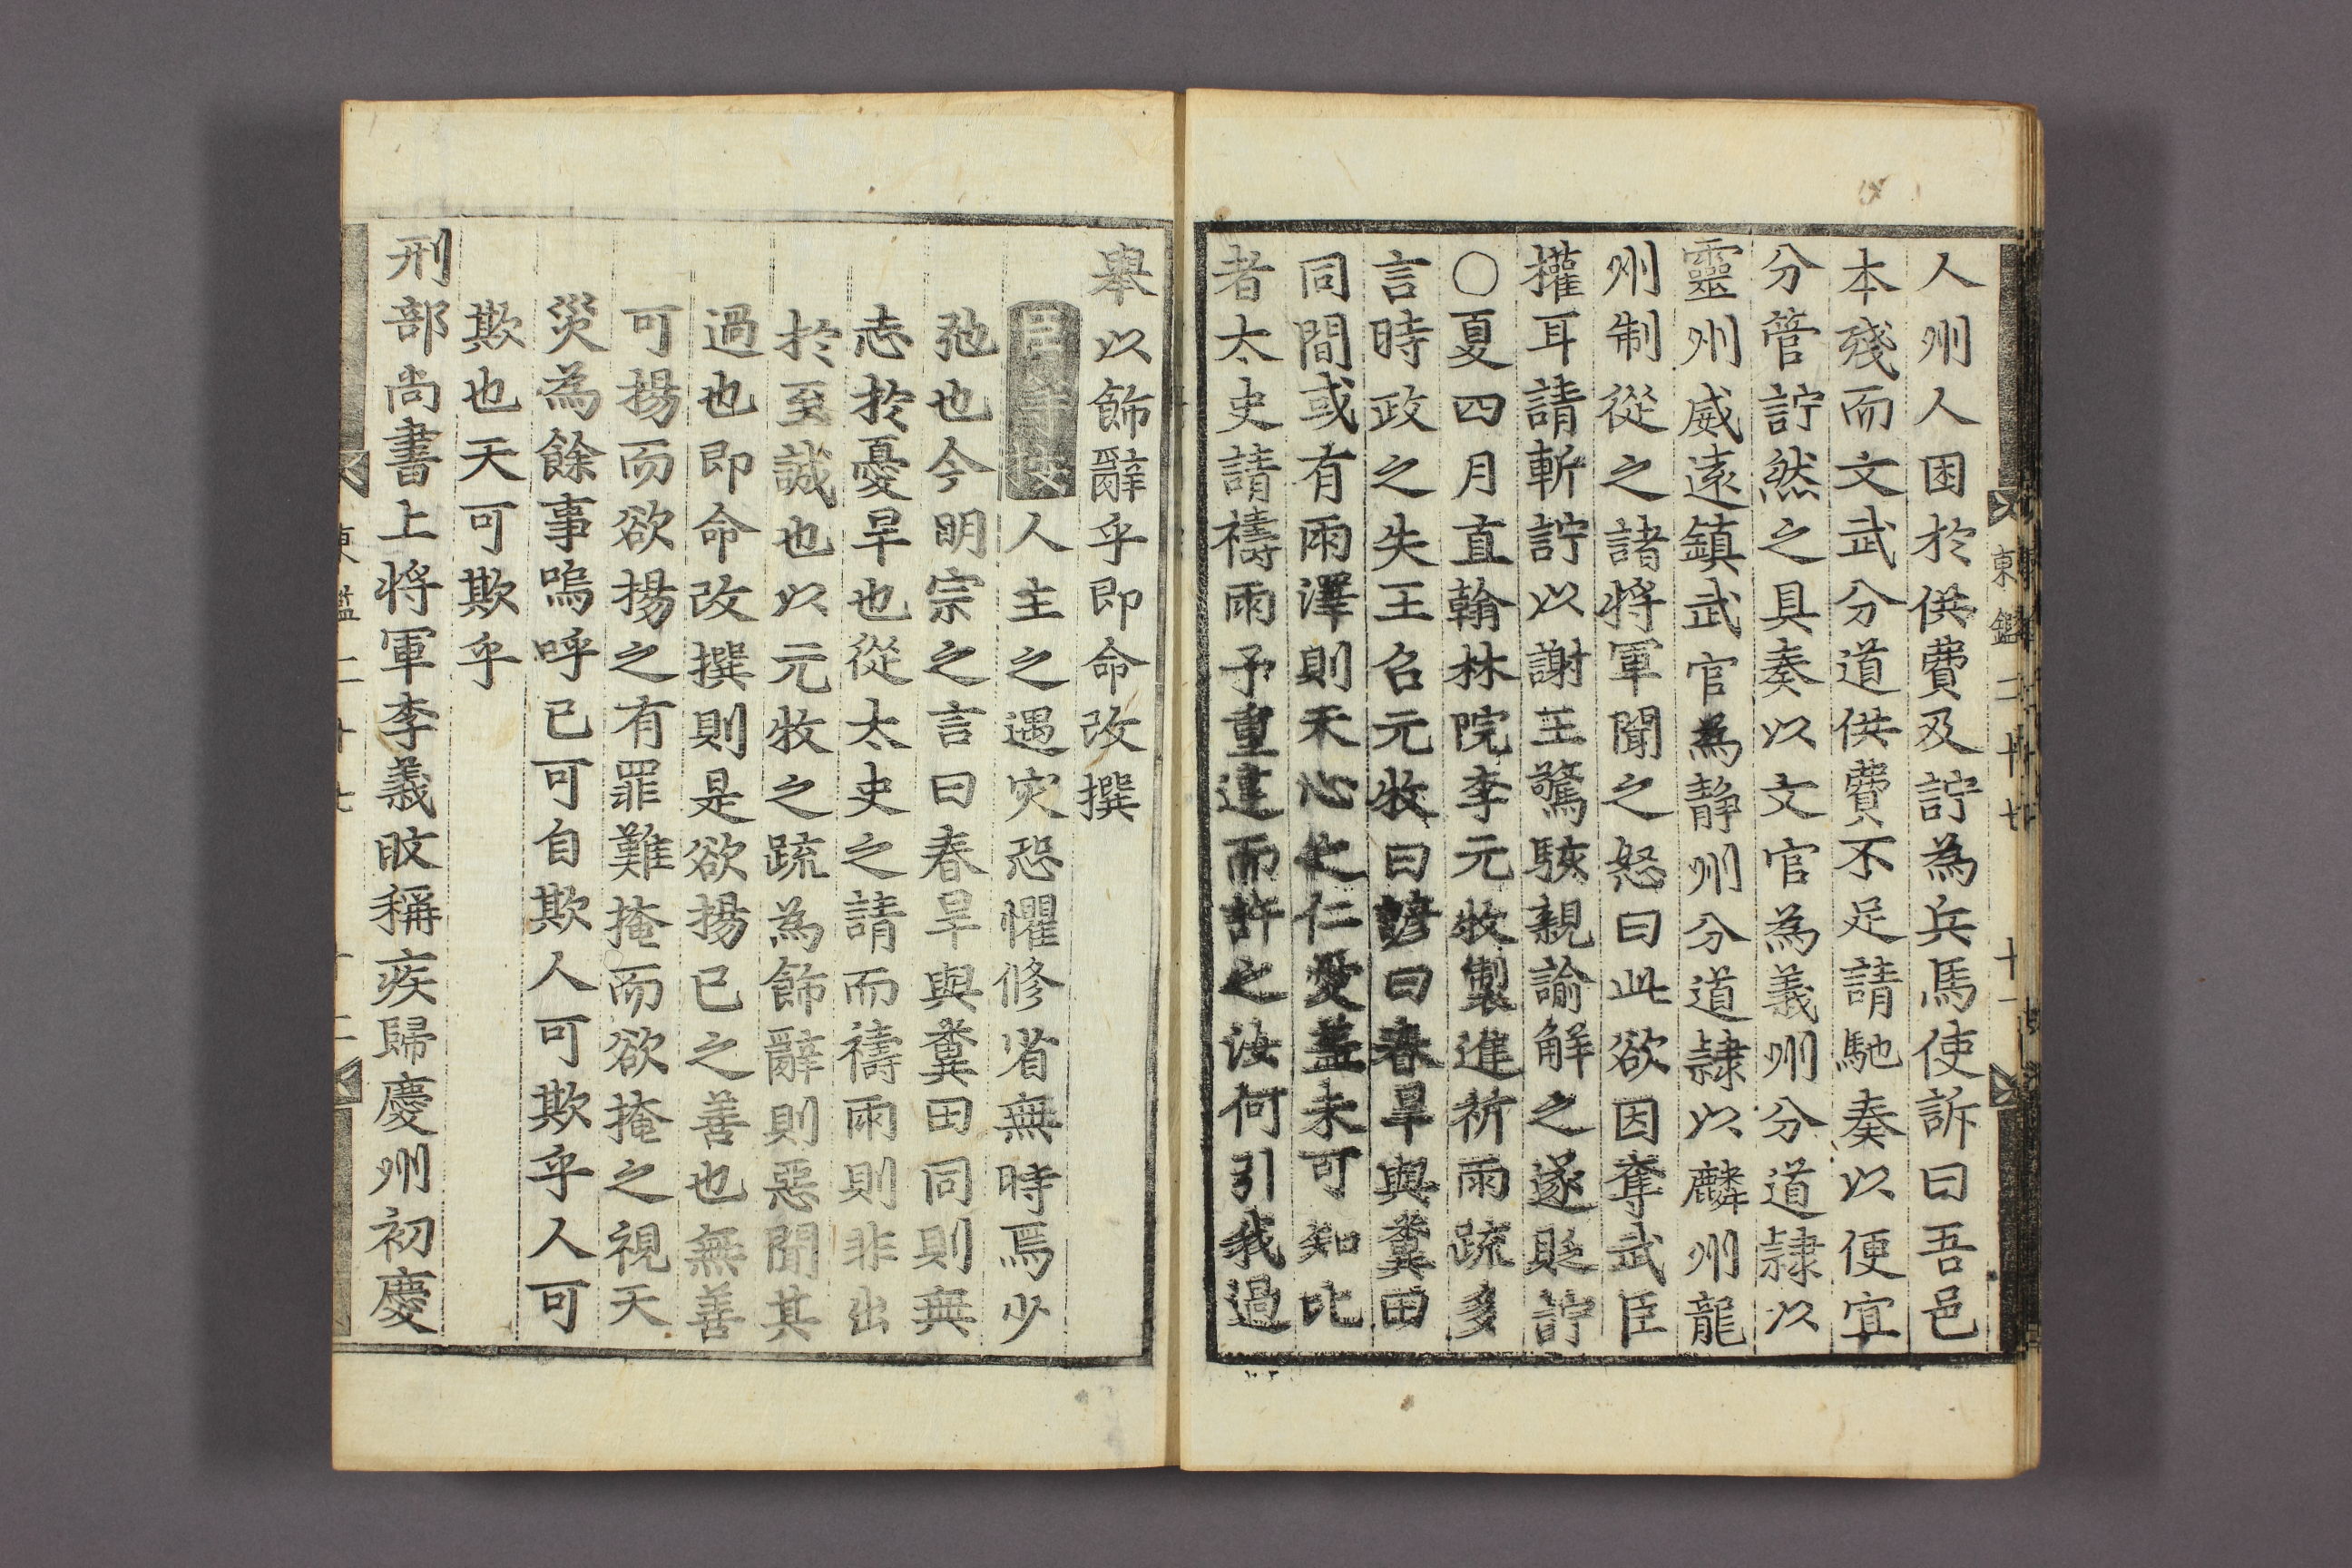 人州人困於供費及䛓為兵馬使訴曰吾邑
本殘而文武分道供費不足請馳奏以便宜
分管䛓然之具奏以文官為義州分道隷以
靈州威遠鎮武官為靜州分道隷以麟州龍
州制從之諸将軍聞之怒曰此欲因奪武臣
權耳請斬䛓以謝王驚駭親諭解之遂貶䛓
○夏四月直翰林院李元牧製進祈雨疏多
言時政之失王召元牧曰諺曰春旱與糞田
同間或有雨澤則天心之仁愛盖未可知比
者太史請禱雨予重違而許之汝何引我過
東鑑二十七 十一
舉以飾辭乎即命改撰
人主之遇灾恐懼修省無時焉少
弛也今明宗之言曰春旱與糞田同則無
志於憂旱也從太史之請而禱雨則非出
於至誠也以元牧之疏為飾辭則惡聞其
過也即命改撰則是欲揚已之善也無善
可揚而欲揚之有罪難掩而欲掩之視天
災為餘事嗚呼已可自欺人可欺乎人可
欺也天可欺乎
刑部尚書上将軍李義旼稱疾歸慶州初慶